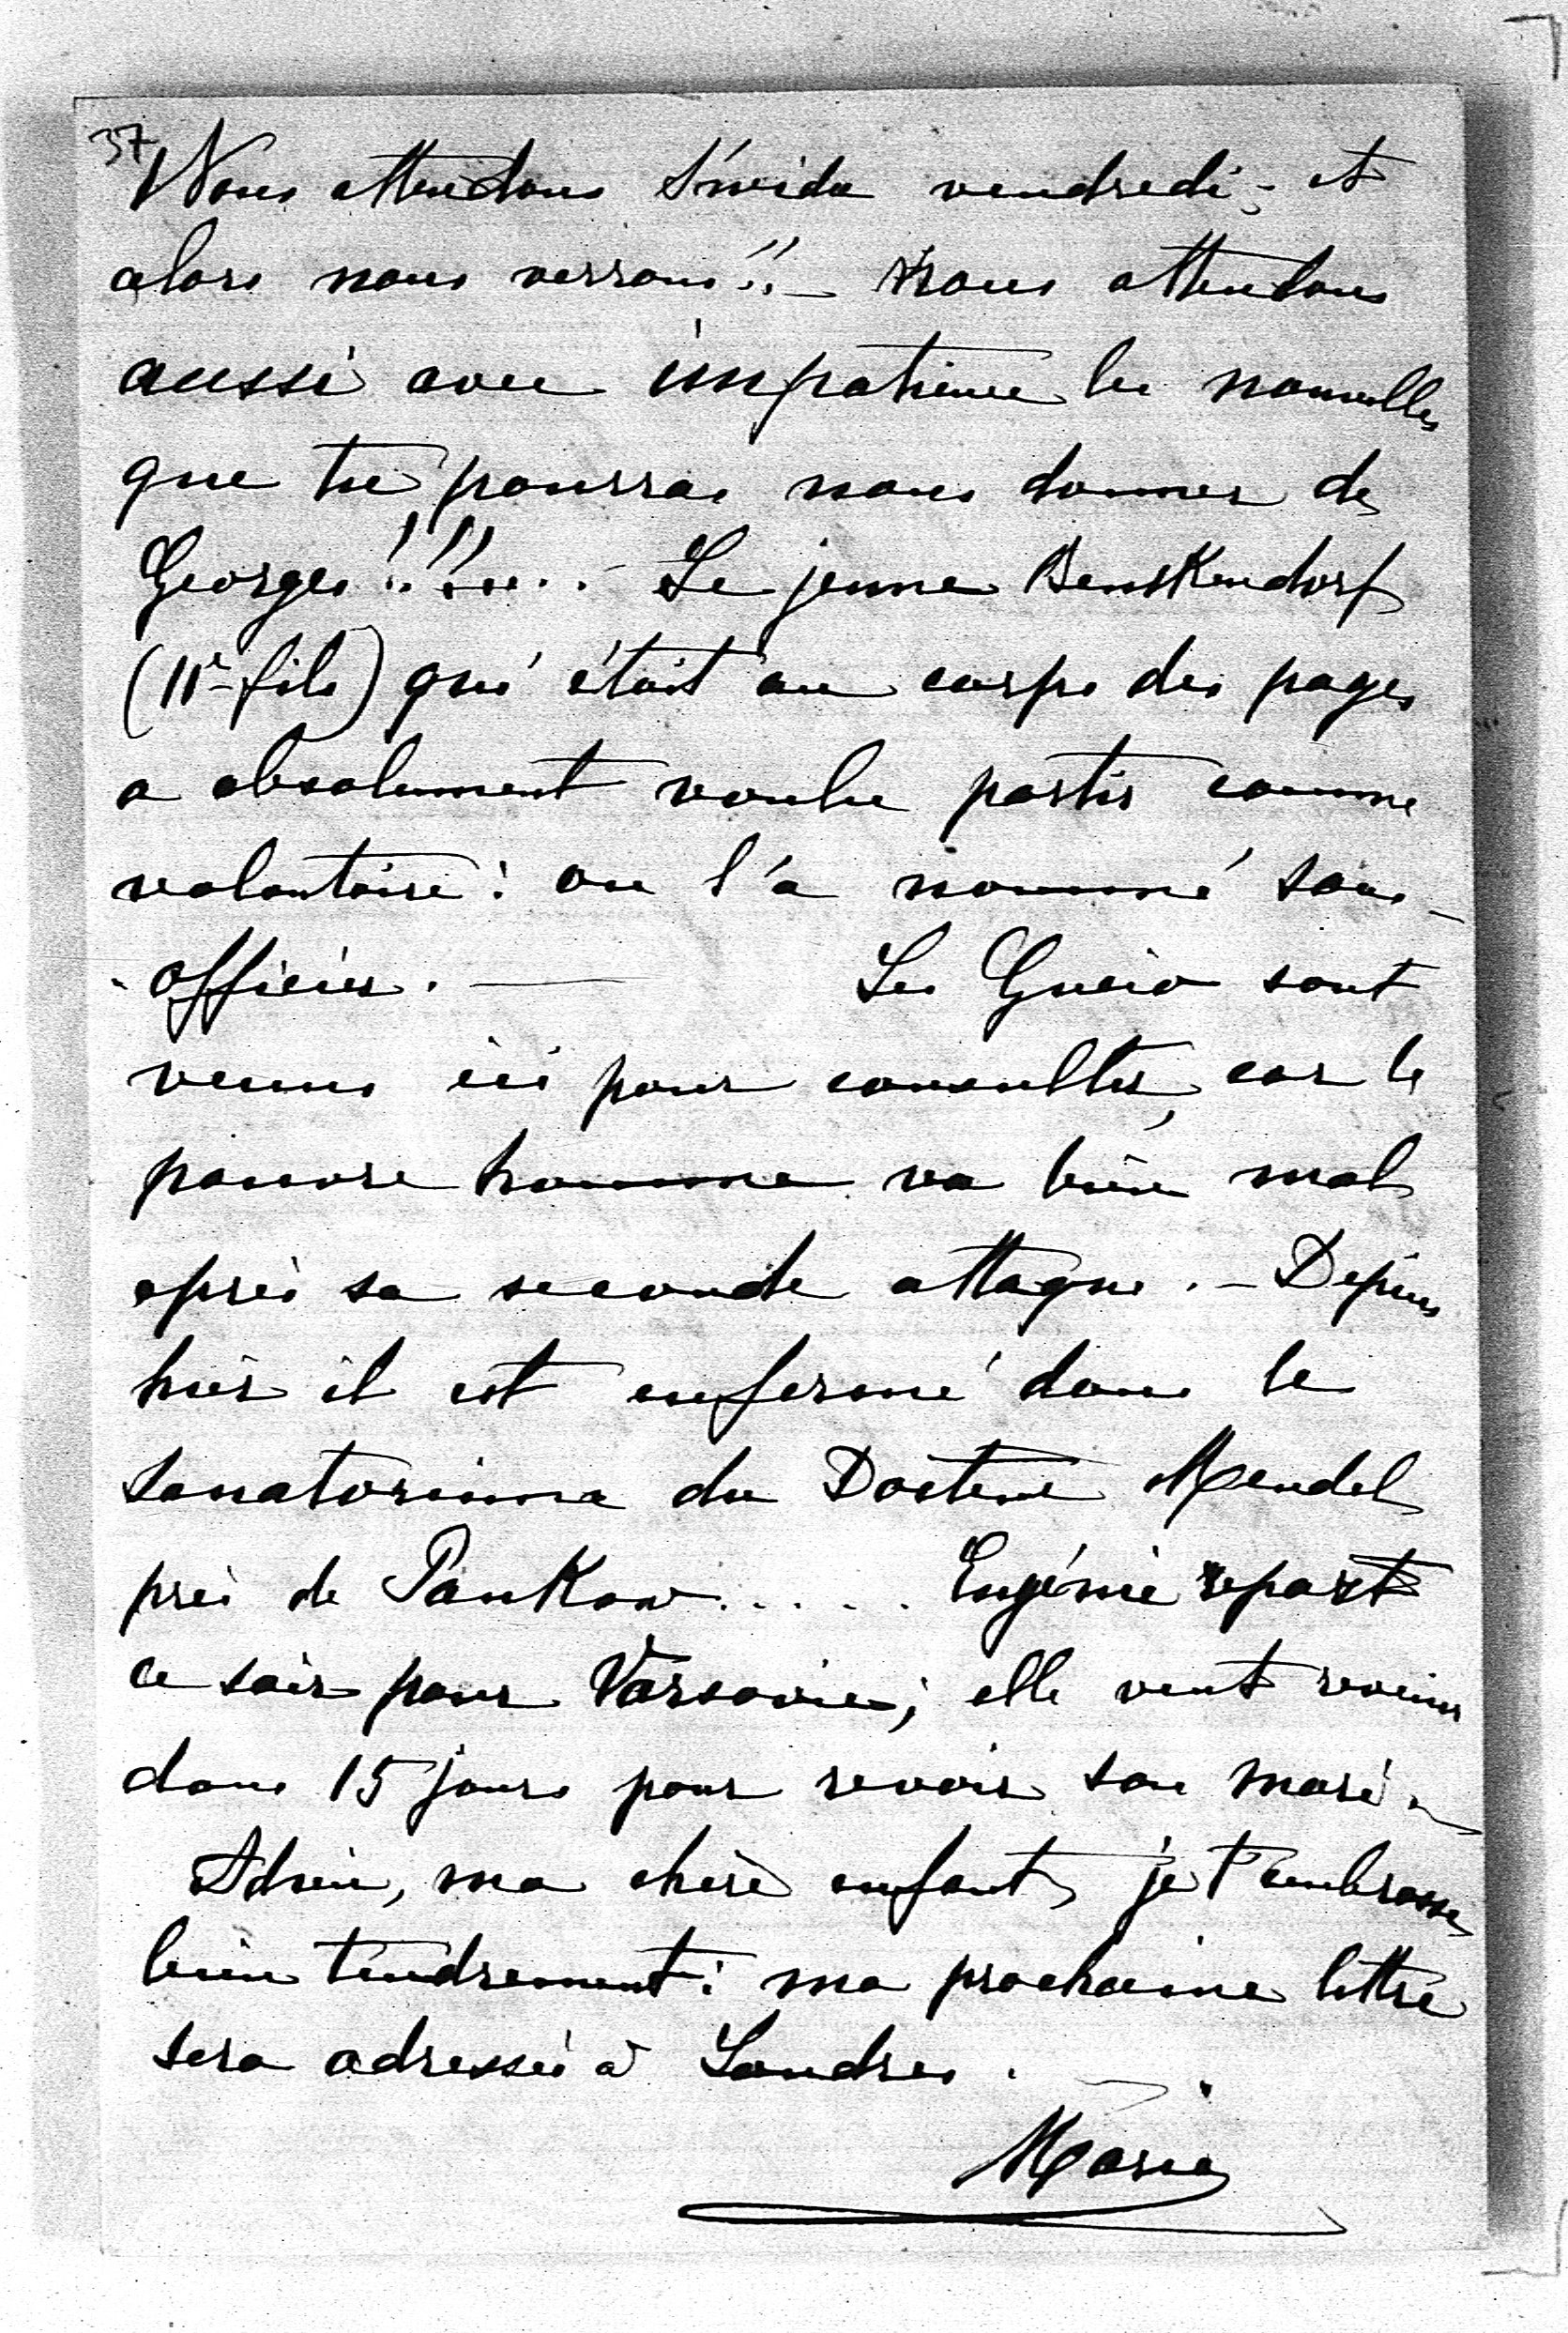 37
Nous attendons Snieda vendredi - et
alors nous verrons!! - Nous attendons
aussi avec impatience les nouvelles
que tu pourras nous donner de
Georges!!!.... - Le jeune Benskendorf
(IIe fils) qui était au corps des pages
a absolument voulu partir comme
volontaire : on l'a nommé sous-
-officier. — Les Gneis sont
venus ici pour consulter, car le
pauvre homme va bien mal
après sa seconde attaque. - Depuis
hier il est enfermé dans le
Sanatorium du Docteur Mendel
près de Pankow..... Eugénie repart
ce soir pour Varsovie ; elle veut revenir
dans 15 jours pour revoir son mari. -
Adieu, ma chère enfant, je t'embrasse
bien tendrement : ma prochaine lettre
sera adressée à Londres.
Marie